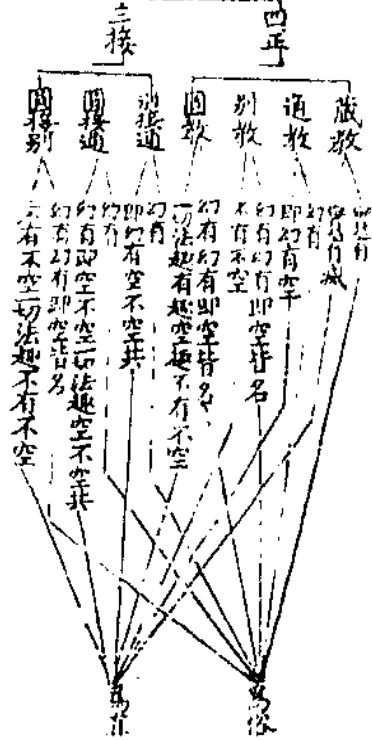 四正
三接
藏教
通教
別教
圓教
別接通
圓接通
圓接別
幻有
即幻有空
幻有幻有即空皆名
不有不空
幻有幻有即空皆名
一切法趣有趣空趣不有不空
幻有
即幻有空不空共
幻有
幻有即空不空一切法趣空不空共
幻有幻有即空皆名
不有不空一切法趣不有不空
為俗
為真